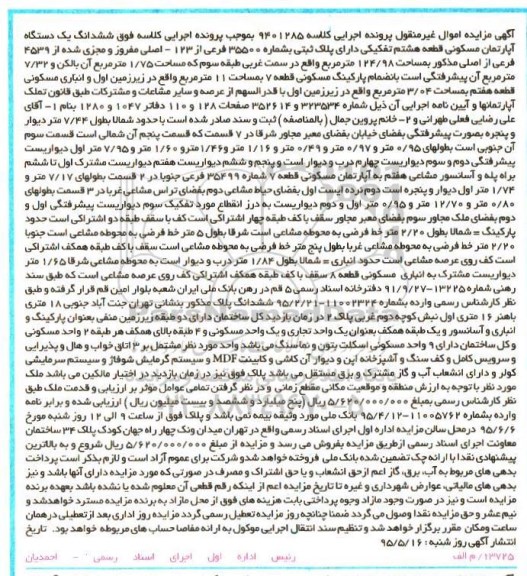 آگهی مزایده اموال غیرمنقول پرونده اجرایی کلاسه 9401285 بموجب پرونده اجرایی کلاسه فوق ششدانگ یک دستگاه
آپارتمان مسکونی قطعه هشتم تفکیکی دارای پلاک ثبتی بشماره 35500 فرعی از 123 - اصلی مفروز و مجزی شده از 4539
فرعی از اصلی مذکور بمساحت 124/98 مترمربع واقع در سمت غربی طبقه سوم که مساحت 1/75 مترمربع آن بالکن و 7/32
مترمربع آن پیشرفتگی است بانضمام پارکینگ مسکونی قطعه 7 بمساحت 11 مترمربع واقع در زیرزمین اول و انباری مسکونی
قطعه هفتم بمساحت 3/04 مترمربع واقع در زیرزمین اول با قدرالسهم از عرصه و سایر مشاعات و مشترکات طبق قانون تملک
آپارتمانها و آیین نامه اجرایی آن ذیل شماره 323534 و 352614 صفحات 128 و 110 دفاتر 1047 و 1280 بنام 1- آقای
علی رضایی فعلی طهرانی و 2- خانم پروین جمال (بالمناصفه) ثبت و سند صادر شده است با حدود شمالا بطول 7/44 متر دیوار
و پنجره بصورت پیشرفتگی بفضای خیابان بفضای معبر مجاور شرقا در 7 قسمت که قسمت پنجم آن شمالی است قسمت سوم
آن جنوبی است بطولهای 0/95 متر و 0/97 متر و 0/49 متر و 1/16 متر و 1/46 مترو 1/60 متر و 7/95 متر اول دیواریست
پیشرفتگی دوم و سوم دیواریست چهارم درب و دیوار است و پنجم و ششم دیواریست هفتم دیواریست مشترک اول تا ششم
براه پله و آسانسور مشاعی هفتم به آپارتمان مسکونی قطعه 7 شماره 35499 فرعی جنوبا در 2 قسمت بطولهای 7/17 متر و
1/74 متر اول دیوار و پنجره است دوم نرده ایست اول بفضای حیاط مشاعی دوم بفضای تراس مشاعی غربا در 3 قسمت بطولهای
0/80 متر و 12/70 متر و 0/95 متر اول و دوم دیواریست به درز انقطاع مورد تفکیک سوم دیواریست پیشرفتگی اول و
دوم بفضای ملک مجاور سوم بفضای معبر مجاور سقف با کف طبقه چهار اشتراکی است کف با سقف طبقه دو اشتراکی است حدود
پارکینگ = شمالا بطول 2/20 متر خط فرضی به محوطه مشاعی است شرقا بطول 5 متر خط فرضی به محوطه مشاعی است جنوبا
2/20 متر خط فرضی به محوطه مشاعی غربا بطول پنج متر خط فرضی به محوطه مشاعی است سقف با کف طبقه همکف اشتراکی
است کف روی عرصه مشاعی است حدود انباری = شمالا بطول 1/84 متر درب و دیوار است به محوطه مشاعی شرقا 1/65 متر
دیواریست مشترک به انباری مسکونی قطعه 8 سقف با کف طبقه همکف اشتراکی کف روی عرصه مشاعی است که طبق سند
رهنی شماره 13225-91/9/27 دفترخانه اسناد رسمی 5 قم در رهن بانک ملی ایران شعبه بلوار امین قم قرار گرفته و طبق
نظر کارشناس رسمی وارده بشماره 11002324-95/2/21 ششدانگ پلاک مذکور بنشانی تهران جنت آباد جنوبی 18 متری
باهنر 16 متری اول نبش کوچه دوم غربی پلاک 12 در زمان بازدید کل ساختمان دارای دو طبقه زیرزمین منفی بعنوان پارکینگ و
انباری و آسانسور و یک طبقه همکف بعنوان یک واحد تجاری و یک واحد مسکونی و 4 طبقه بالای همکف هر طبقه 2 واحد مسکونی
و کل ساختمان دارای 9 واحد مسکونی اسکلت بتون و نماسنگی می باشد واحد مورد نظر مشتمل بر 3 اتاق خواب و هال و پذیرایی
و سرویس کامل و کف سنگ و آشپزخانه اپن و دیوار آن کاشی و کابینت MDF و سیستم گرمایش شوفاژ و سیستم سرمایشی
کولر و دارای انشعاب آب و گاز مشترک و برق مستقل می باشد پلاک فوق نیز در زمان بازدید در اختیار مالکین می باشد ملک
مورد نظر با توجه به ارزش منطقه و موقعیت مکانی مقطع زمانی و در نظر گرفتن تمامی عوامل موثر بر ارزیابی و قدمت ملک طبق
نظر کارشناس رسمی بمبلغ 5/620/000/000 ریال (پنج میلیارد و ششصد و بیست میلیون ریال) ارزیابی شده و برابر نامه
وارده بشماره 11005762-95/4/12 بانک ملی مورد وثیقه بیمه نمی باشد و پلاک فوق از ساعت 9 الی 12 روز شنبه مورخ
95/6/6 در محل سالن مزایده اداره اول اجرای اسناد رسمی واقع در تهران میدان ونک چهار راه جهان کودک پلاک 34 ساختمان
معاونت اجرای اسناد رسمی ازطریق مزایده بفروش می رسد و مزایده از مبلغ 5/620/000/000 ریال شروع و به بالاترین
پیشنهادی نقدا با ارائه چک تضمین شده بانک ملی فروخته خواهد شدو شرکت برای عموم آزاد است و لازم بذکر است پرداخت
بدهی های مربوط به آب، برق، گاز اعم ازحق انشعاب و یا حق اشتراک و مصرف در صورتی که مورد مزایده دارای آنها باشد و نیز
بدهی های مالیاتی، عوارض شهرداری و غیره تا تاریخ مزایده اعم از اینکه رقم قطعی آن معلوم شده یا نشده باشد بعهده برنده
مزایده است و نیز در صورت وجود مازاد وجوه پرداختی بابت هزینه های فوق از محل مازاد به برنده مزایده مسترد خواهدشد و
نیم عشر و حق مزایده نقدا وصول می گردد ضمنا چنانچه روز مزایده تعطیل رسمی گردد مزایده روز اداری بعد ازتعطیلی درهمان
ساعت ومکان مقرر برگزار خواهد شد و تنظیم سند انتقال اجرایی موکول به ارائه مفاصا حساب های مربوطه خواهد بود. تاریخ
انتشار آگهی روز شنبه: 95/5/16
13725/م الف رئیس اداره اول اجرای اسناد رسمی - احمدیان